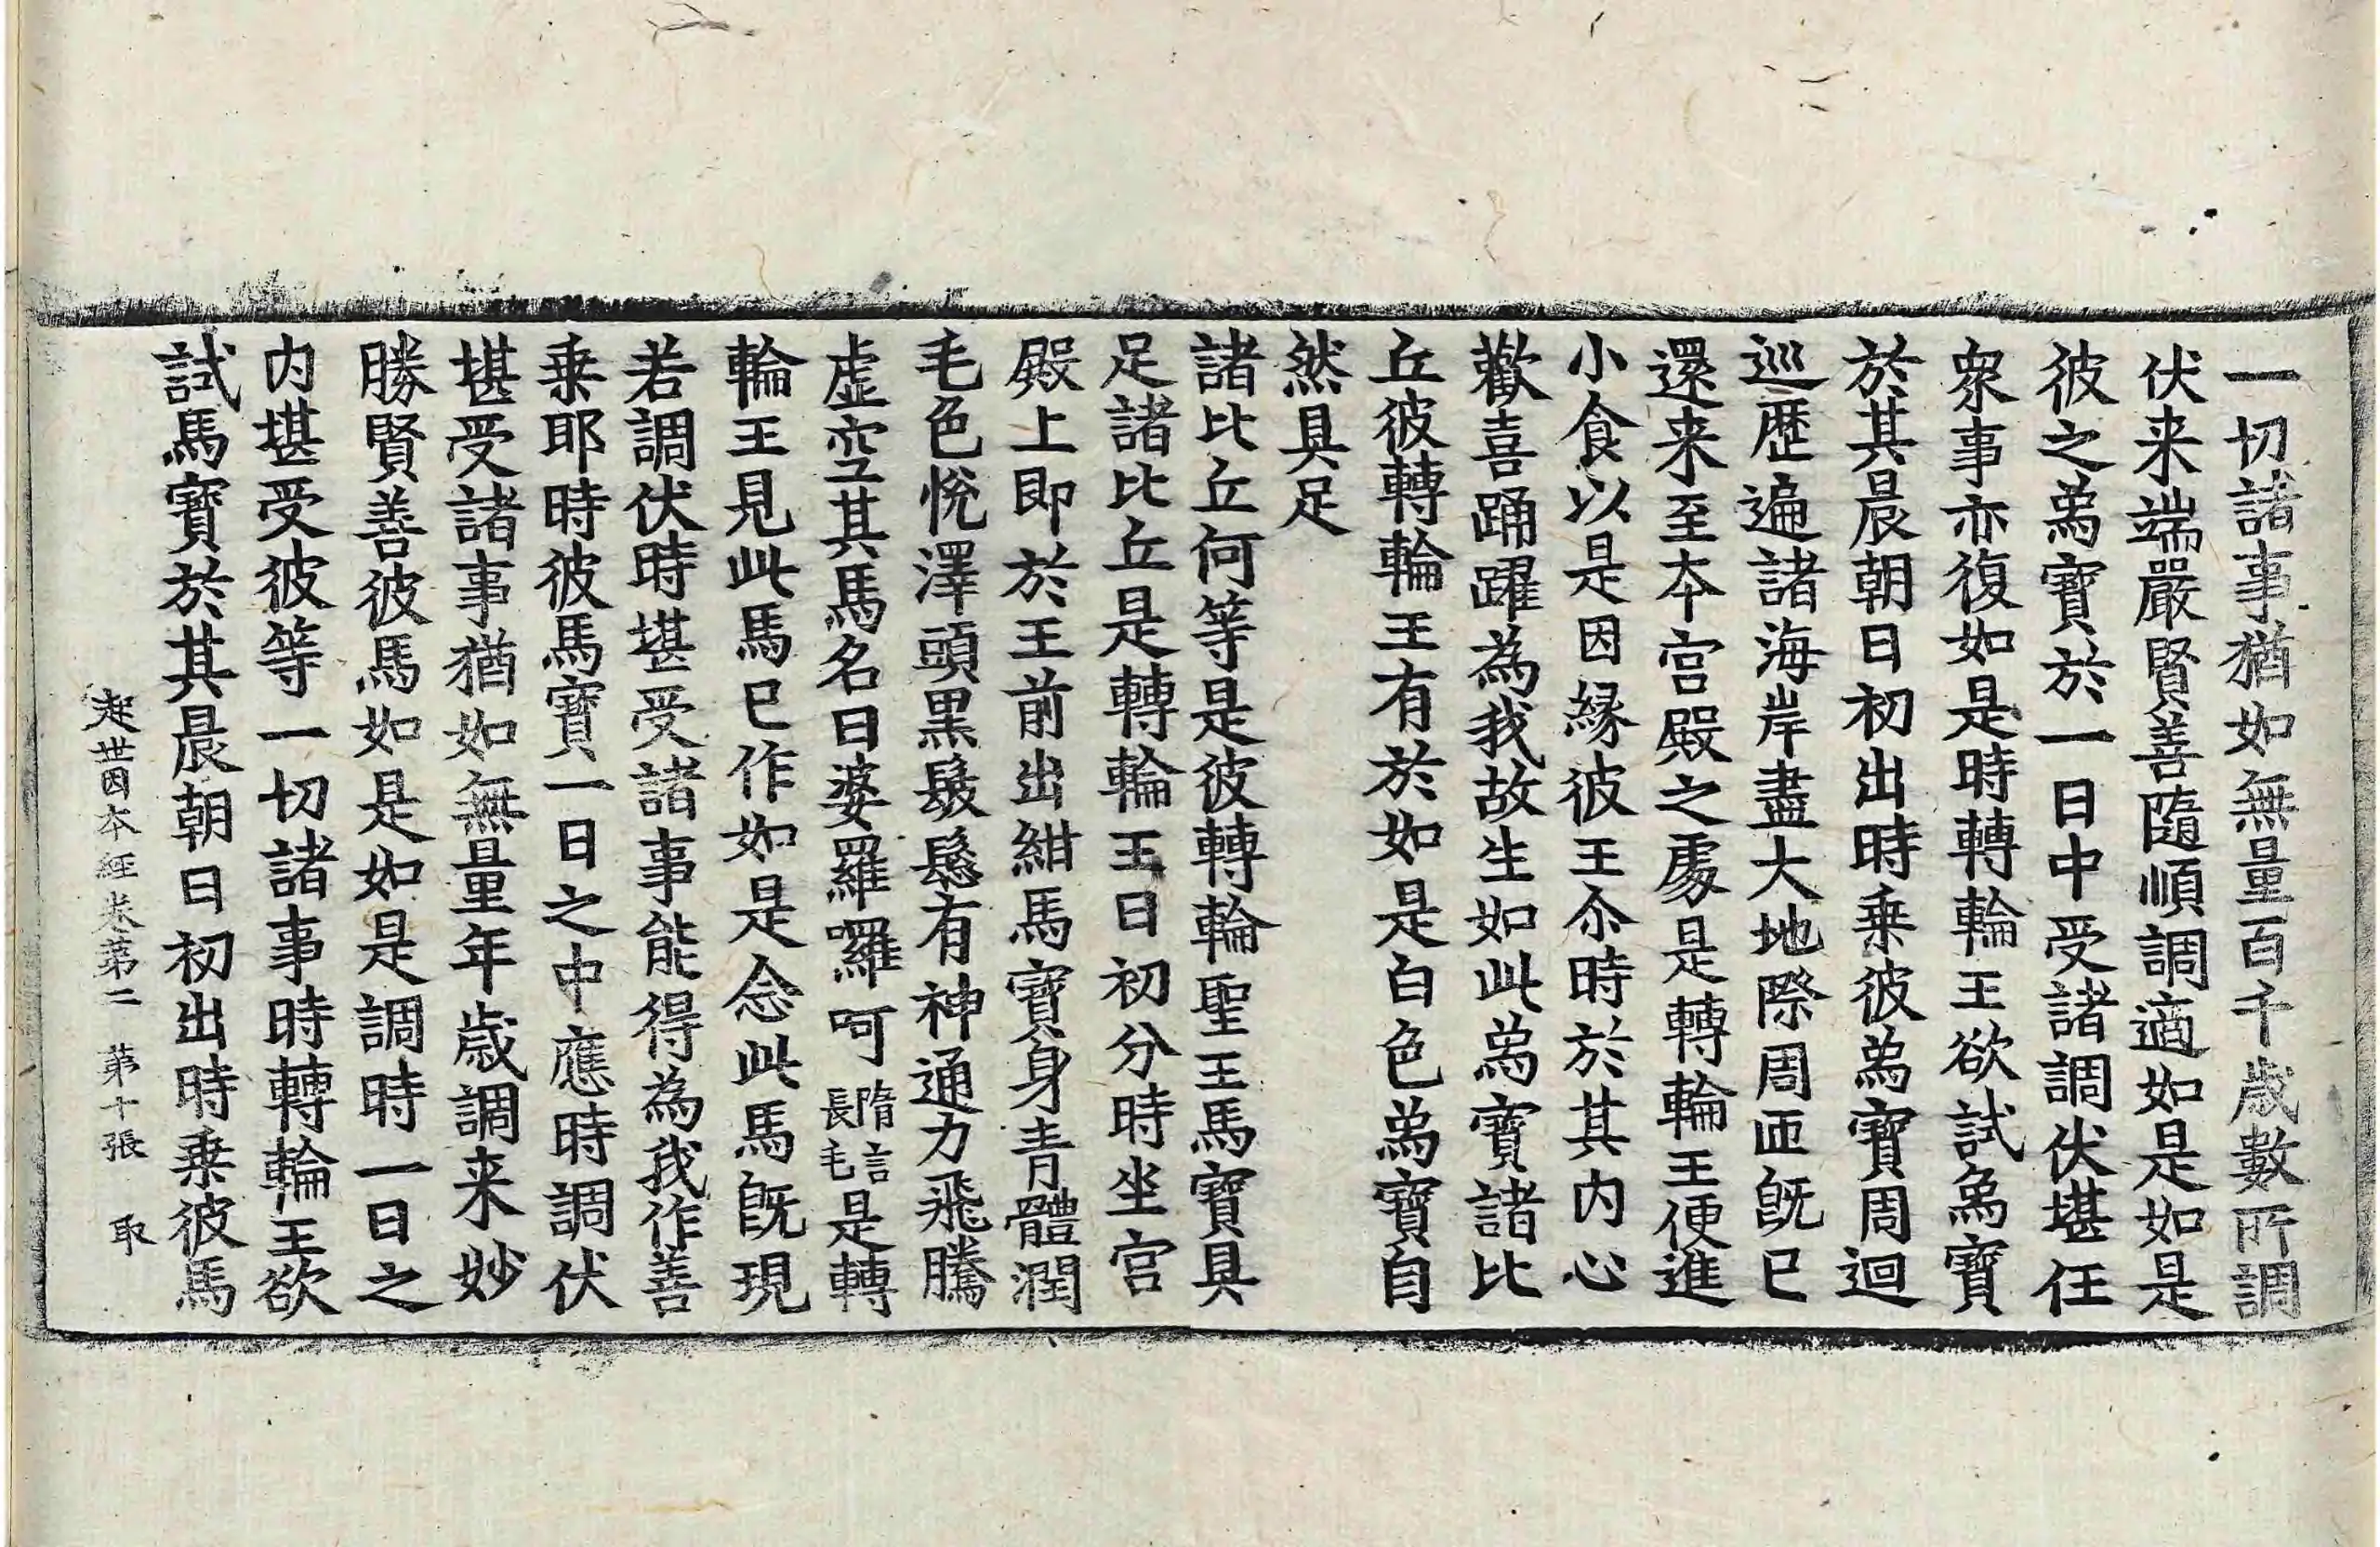 一切諸事猶如無量百千歲數所調
伏来端嚴賢善隨順調適如是如是
彼之為寶於一日中受諸調伏堪任
衆事亦復如是時轉輪王欲試為寶
於其晨朝日初出時乗彼為寶周迴
巡歷遍諸海岸盡大地際周匝既已
還来至本宮殿之處是轉輪王便進
小食以是因緣彼王尒時於其内心
歡喜踊躍為我故生如此為寶諸比
丘彼轉輪王有於如是白色為寶自
然具足
諸比丘何等是彼轉輪聖王馬寶具
足諸比丘是轉輪王日初分時坐宮
殿上即於王前出紺馬寶身青體潤
毛色悅澤頭黒髮鬆有神通力飛騰
虛空其馬名曰婆羅囉呵隋言長毛是轉
輪王見此馬已作如是念此馬既現
若調伏時堪受諸事能得為我作善
乗耶時彼馬寶一日之中應時調伏
堪受諸事猶如無量年歲調来妙
勝賢善彼馬如是如是調時一日之
内堪受彼等一切諸事時轉輪王欲
試馬寶於其晨朝日初出時乗彼馬
起世因本経卷第二　第十張　取